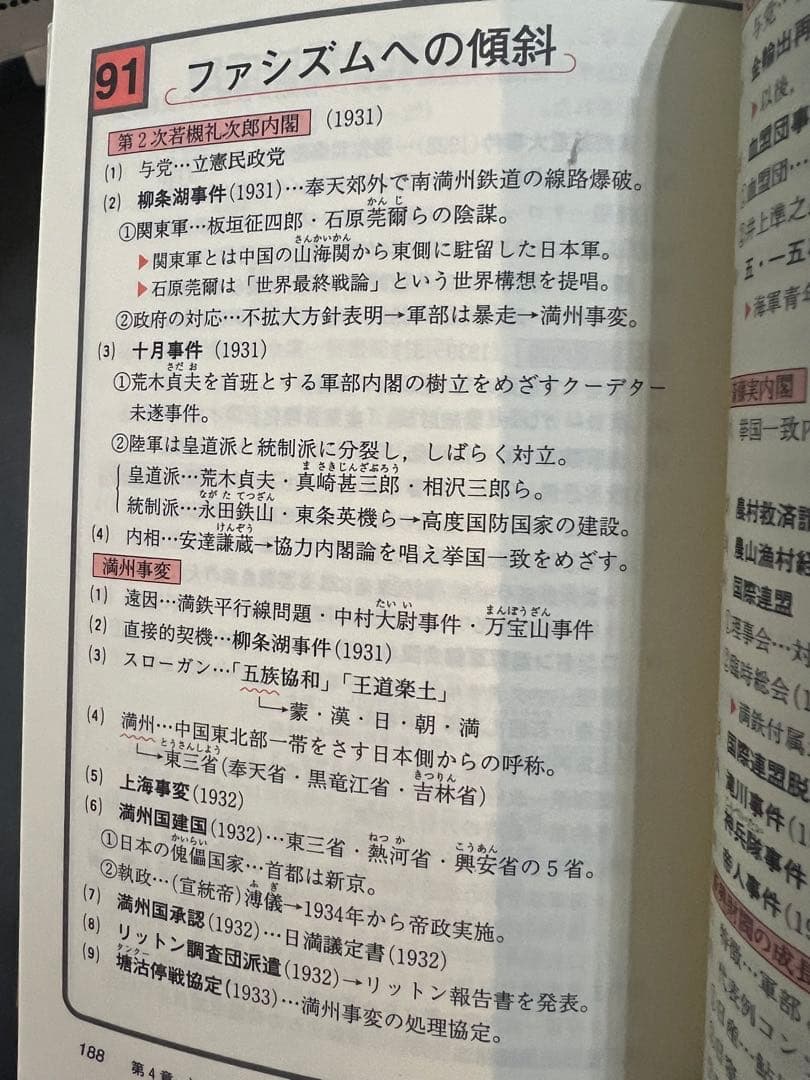 91 ファシズムへの傾斜
第2次若槻礼次郎内閣 (1931)
(1) 与党…立憲民政党
(2) 柳条湖事件(1931)…奉天郊外で南満州鉄道の線路爆破。
かんじ
①関東軍…板垣征四郎・石原莞爾らの陰謀。
さんかいかん
▶関東軍とは中国の山海関から東側に駐留した日本軍。
▶石原莞爾は「世界最終戦論」という世界構想を提唱。
②政府の対応…不拡大方針表明→軍部は暴走→満州事変。
(3) 十月事件(1931)
さだお
①荒木貞夫を首班とする軍部内閣の樹立をめざすクーデター
未遂事件。
②陸軍は皇道派と統制派に分裂し，しばらく対立。
まさきじんざぶろう
皇道派…荒木貞夫・真崎甚三郎・相沢三郎ら。
ながたてつざん
統制派…永田鉄山・東条英機ら→高度国防国家の建設。
けんぞう
(4) 内相…安達謙蔵→協力内閣論を唱え挙国一致をめざす。
満州事変
たいい まんぽうざん
(1) 遠因…満鉄平行線問題・中村大尉事件・万宝山事件
(2) 直接的契機…柳条湖事件(1931)
(3) スローガン…「五族協和」「王道楽土」
→蒙・漢・日・朝・満
(4) 満州…中国東北部一帯をさす日本側からの呼称。
とうさんしょう きつりん
→東三省(奉天省・黒竜江省・吉林省)
(5) 上海事変(1932)
ねっか こうあん
(6) 満州国建国(1932)…東三省・熱河省・興安省の5省。
かいらい
①日本の傀儡国家…首都は新京。
ふぎ
②執政…(宣統帝)溥儀→1934年から帝政実施。
(7) 満州国承認(1932)…日満議定書(1932)
(8) リットン調査団派遣(1932)→リットン報告書を発表。
タンクー
(9) 塘沽停戦協定(1933)…満州事変の処理協定。
188
第4章
与党…
金輸出再
▶以後，
血盟団事
①血盟団…
井上準之
五・一五
▶海軍青年
斎藤実内閣
挙国一致内
農村救済請
農山漁村経
国際連盟
①理事会…対
②臨時総会(1
▶満鉄付属
国際連盟脱
滝川事件(1
神兵隊事件
帝人事件(19
財閥の成長
特徴…軍部
代表例コン